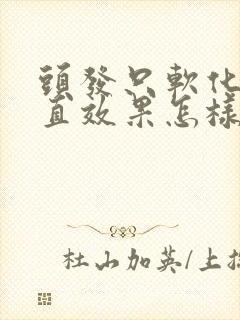 頭發只軟化
直效果怎樣
杜山加英/上拉